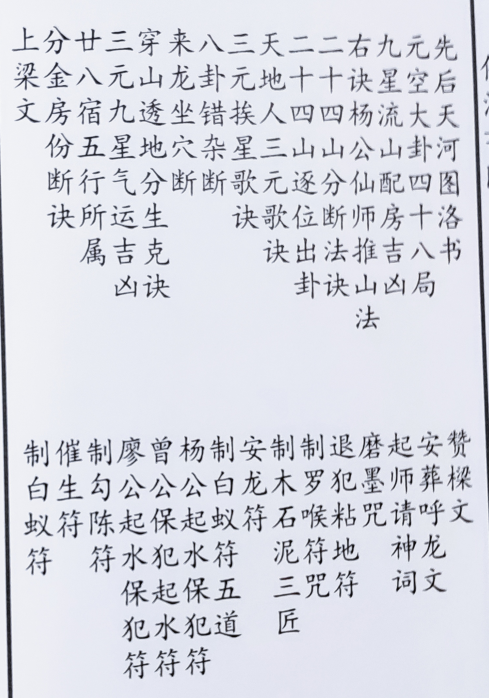 先后天河图洛书
元空大卦四十八局
九星流山配房吉凶
右诀杨公仙师推山法
二十四山分断法诀
二十四山逐位出卦
天地人三元歌诀
三元挨星歌诀
八卦错杂断
来龙坐穴断
穿山透地分生克诀
三元九星气运吉凶
廿八宿五行所属
分金房份断诀
上梁文
赞樑文
安葬呼龙文
起师请神词
磨墨咒
退犯粘地符
制罗喉符咒
制木石泥三匠
安龙符
制白蚁符五道
杨公起水保犯符
曾公保犯起水符
廖公起水保犯符
制勾陈符
催生符
制白蚁符